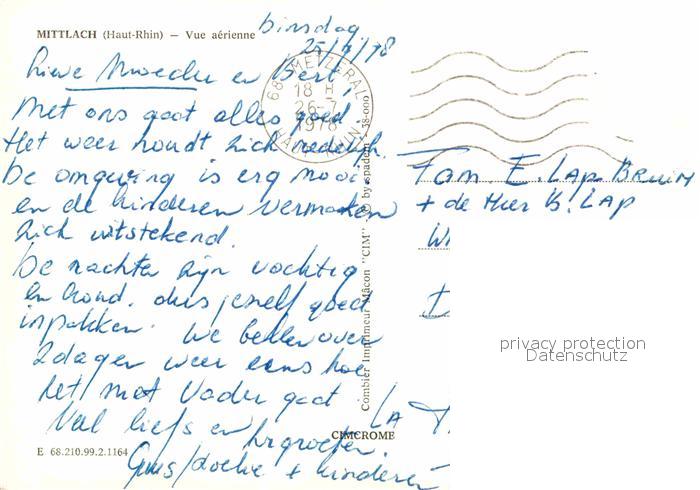 MITTLACH (Haut-Rhin) – Vue aérienne
Dinsdag
25/7/78
Lieve Moeder en Bert,
Met ons gaat alles goed.
Het weer houdt zich redelijk.
De omgeving is erg mooi
en de kinderen vermaken
zich uitstekend.
De nachten zijn vochtig
en koud, dus jezelf goed
inpakken. We bellen over
2 dagen weer eens hoe
het met Vader gaat
Veel liefs en
hrgroeten.
Guus/Loekie + kinderen
68 METZERAL
18 H
26-7
1978
HAUT-RHIN
Fam E. LAP BRUIN
+ de Heer B. LAP
LA
Combier Imprimeur Mâcon "CIM"
© by spadem
CIMCROME
E 68.210.99.2.1164
privacy protection
Datenschutz